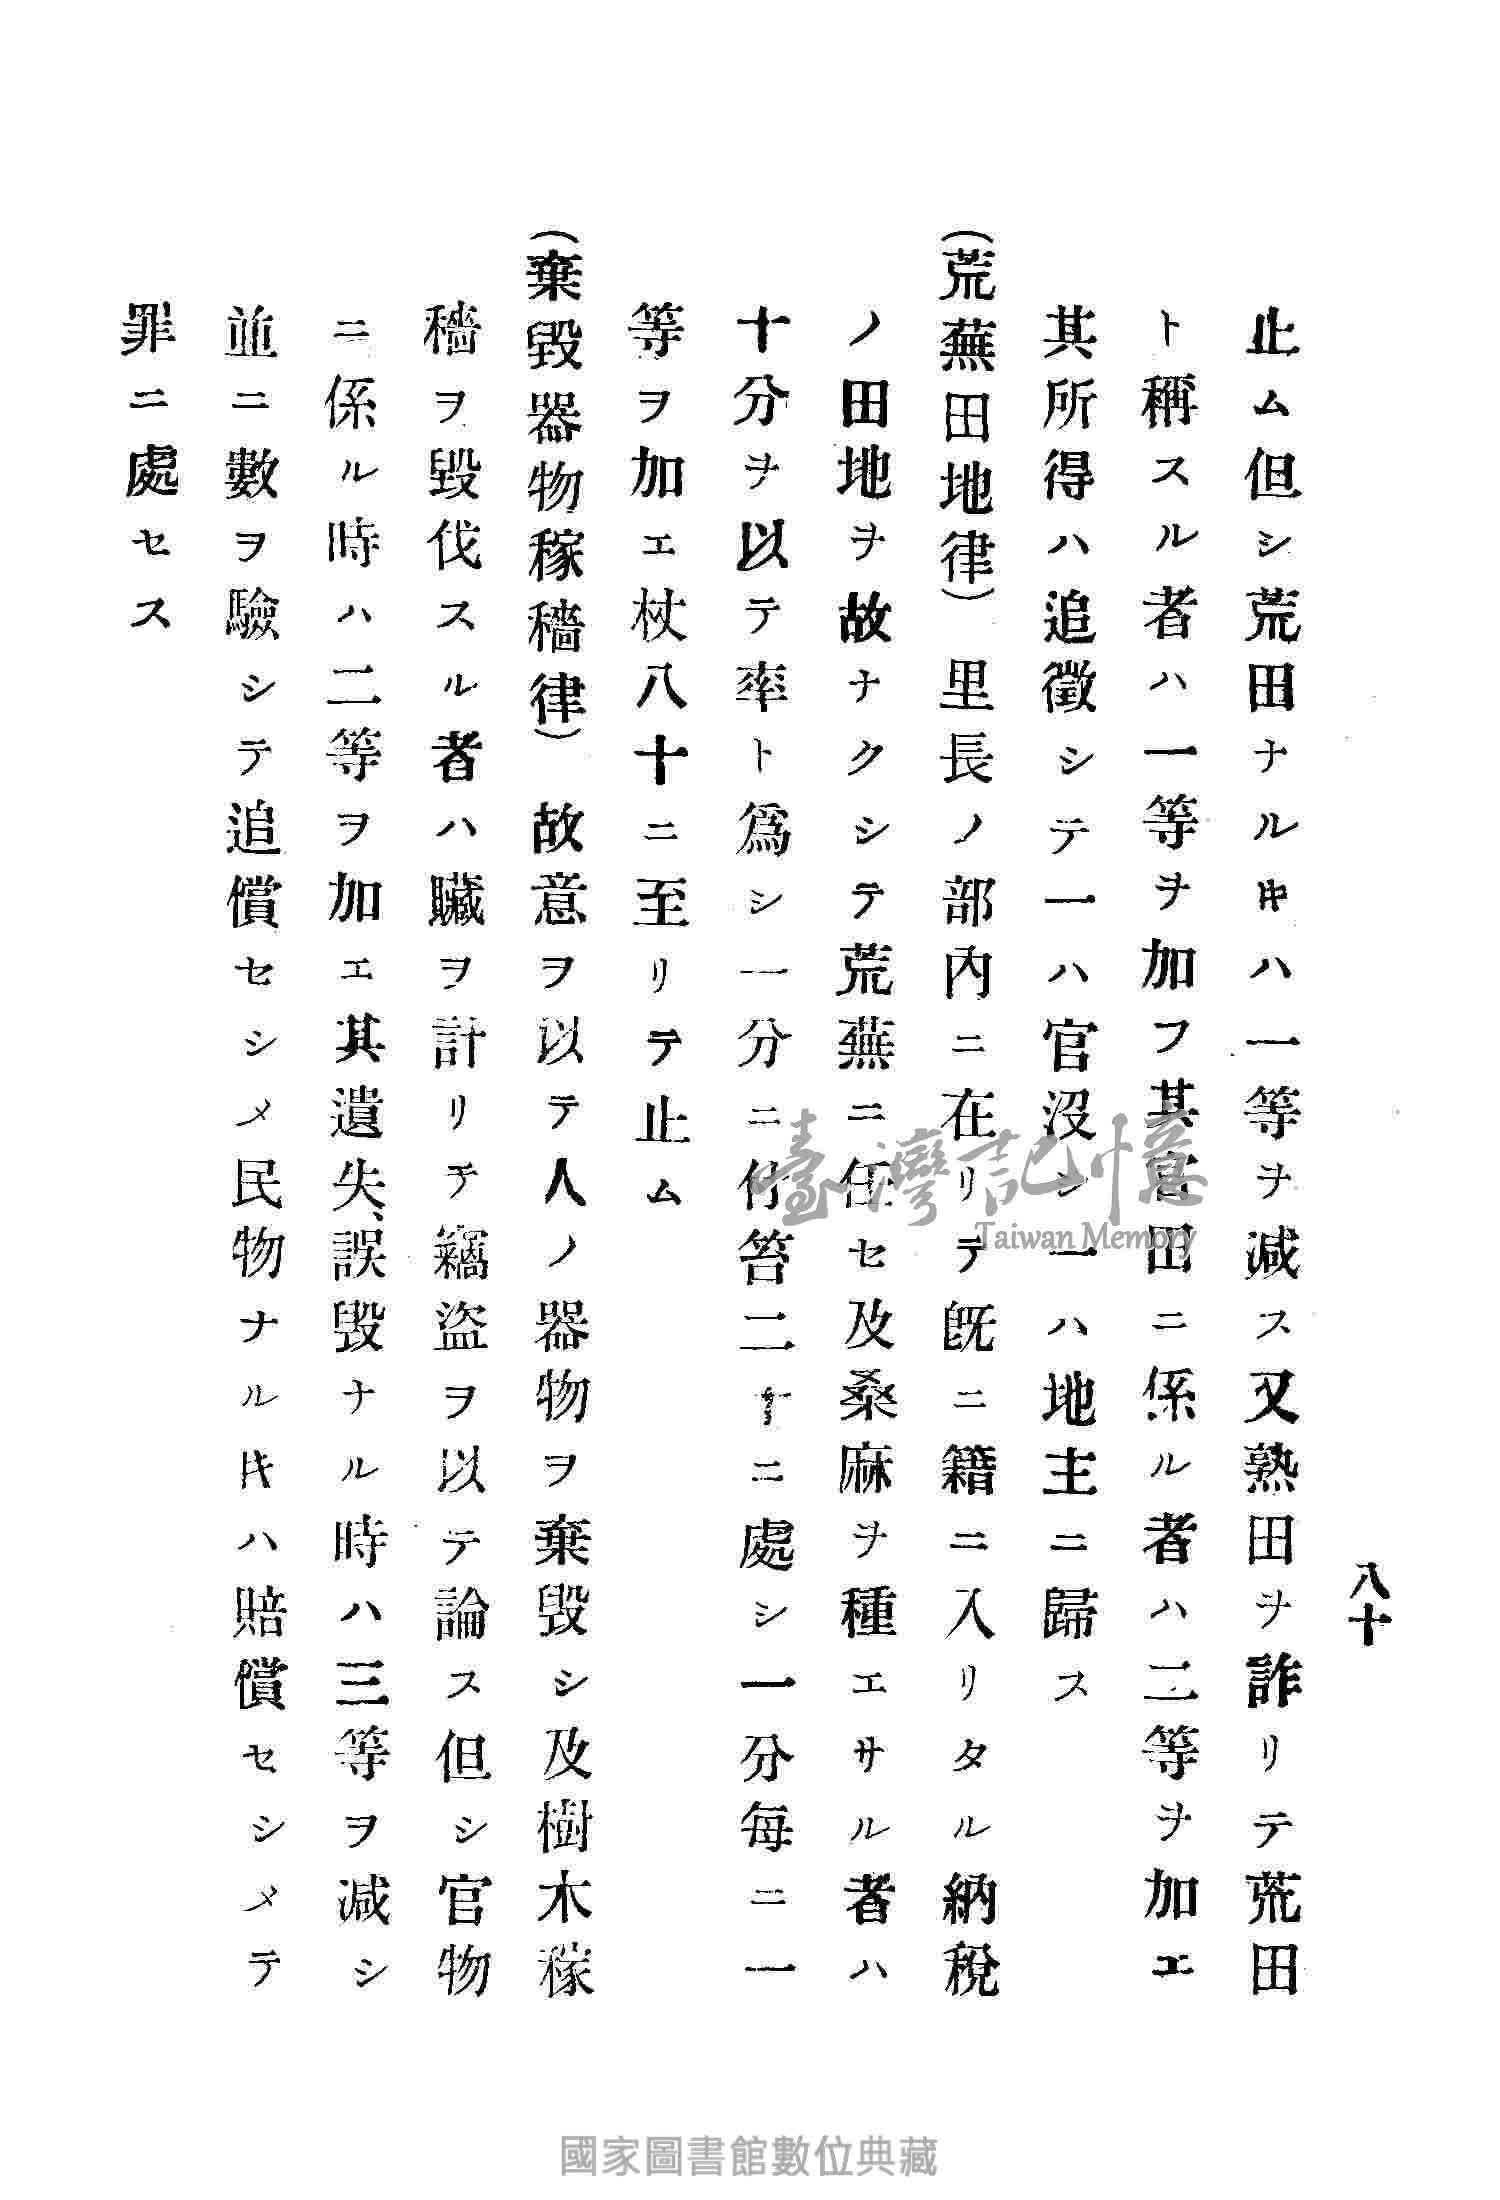 八十
止ム但シ荒田ナルキハ一等ヲ減ス又熟田ヲ詐リテ荒田
ト稱スル者ハ一等ヲ加フ其官田ニ係ル者ハ二等ヲ加エ
其所得ハ追徵シテ一ハ官沒シ一ハ地主ニ歸ス
(荒蕪田地律) 里長ノ部內ニ在リテ既ニ籍ニ入リタル納稅
ノ田地ヲ故ナクシテ荒蕪ニ任セ及桑麻ヲ種エサル者ハ
十分ヲ以テ率ト爲シ一分ニ付笞二十ニ處シ一分每ニ一
等ヲ加エ杖八十ニ至リテ止ム
(棄毀器物稼穡律) 故意ヲ以テ人ノ器物ヲ棄毀シ及樹木稼
穡ヲ毀伐スル者ハ贜ヲ計リテ竊盜ヲ以テ論ス但シ官物
ニ係ル時ハ二等ヲ加エ其遺失、誤毀ナル時ハ三等ヲ減シ
並ニ數ヲ驗シテ追償セシメ民物ナルキハ賠償セシメテ
罪ニ處セス
臺灣記憶
Taiwan Memory
國家圖書館數位典藏